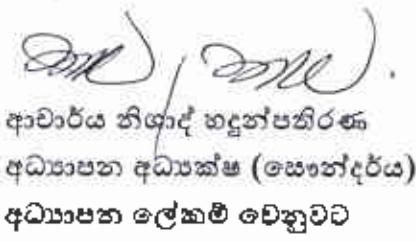 ආචාර්ය නිශාද් හඳුන්පතිරණ
අධ්‍යාපන අධ්‍යක්ෂ (සෞන්දර්ය)
අධ්‍යාපන ලේකම් වෙනුවට